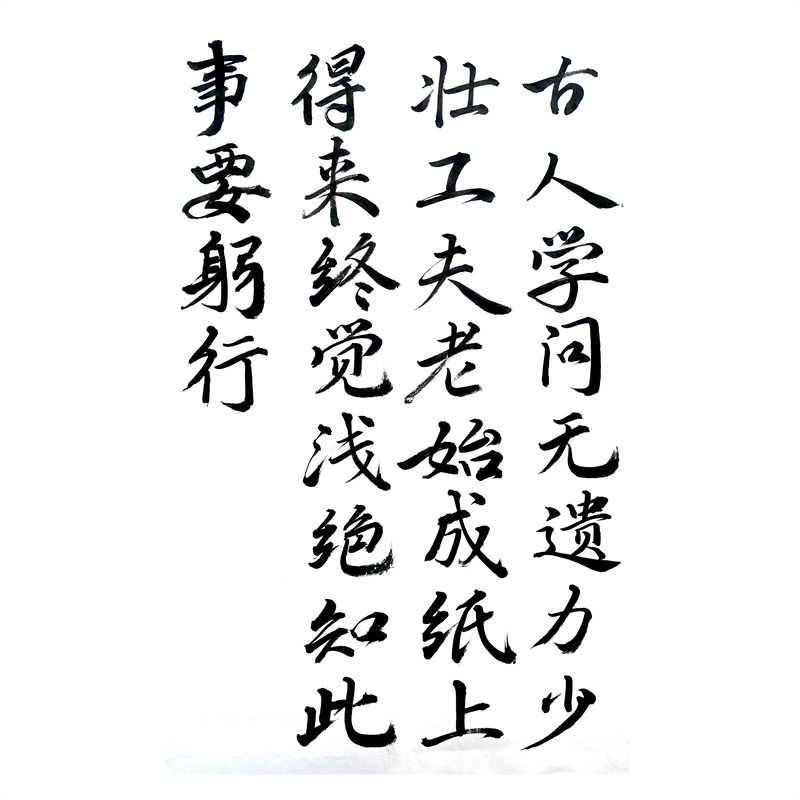 古人学问无遗力少
壮工夫老始成纸上
得来终觉浅绝知此
事要躬行